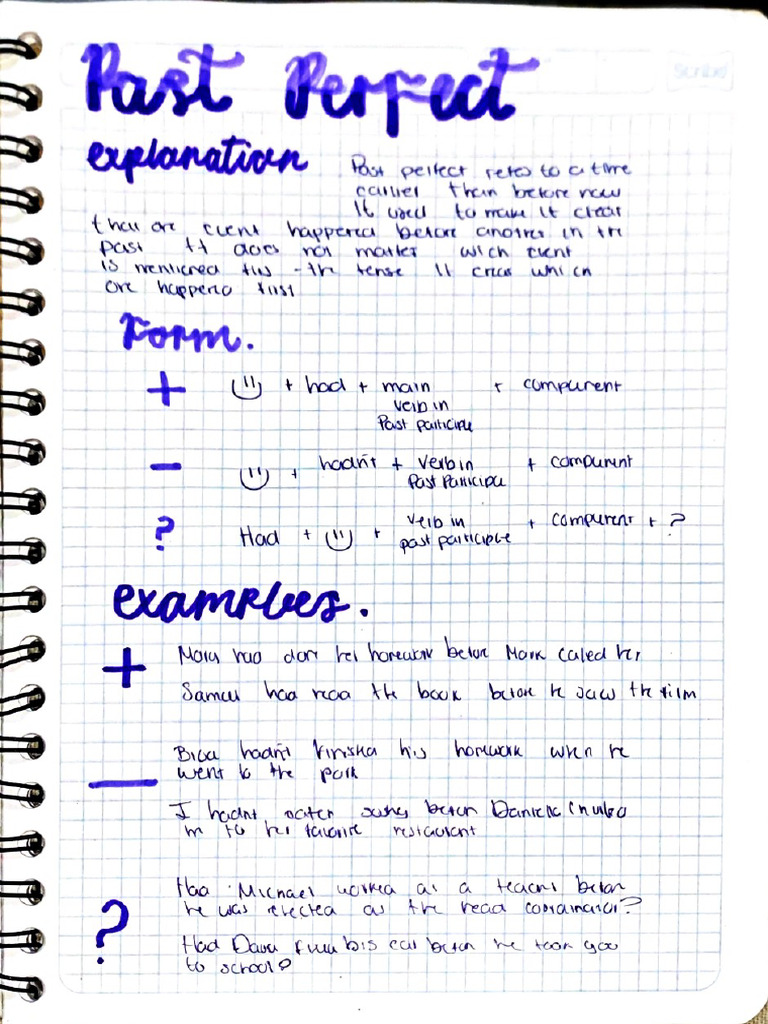 Scribe
Past Perfect
explanation
Past perfect refes to a time
earlier than before now
It used to make it clear
that one event happened before another in the
past It does not matter wich event
is mentioned firs - the tense it clear which
one happend first
Form.
+ + had + main + compunent
verb in
Past participle
- + hadn't + verb in + compunent
Past Participle
? Had + + verb in + compunent + ?
past participle
examples.
+ Mary had done her homework before Mark called her
Samuel had read the book before he saw the film
— hadn't finished his homework when he
went to the park
I hadnt eaten before Danielle invited
m to her favorite restaurant
? Had Michael worked as a teacher before
he was elected as the head coordinator?
Had his car before he took you
to school?